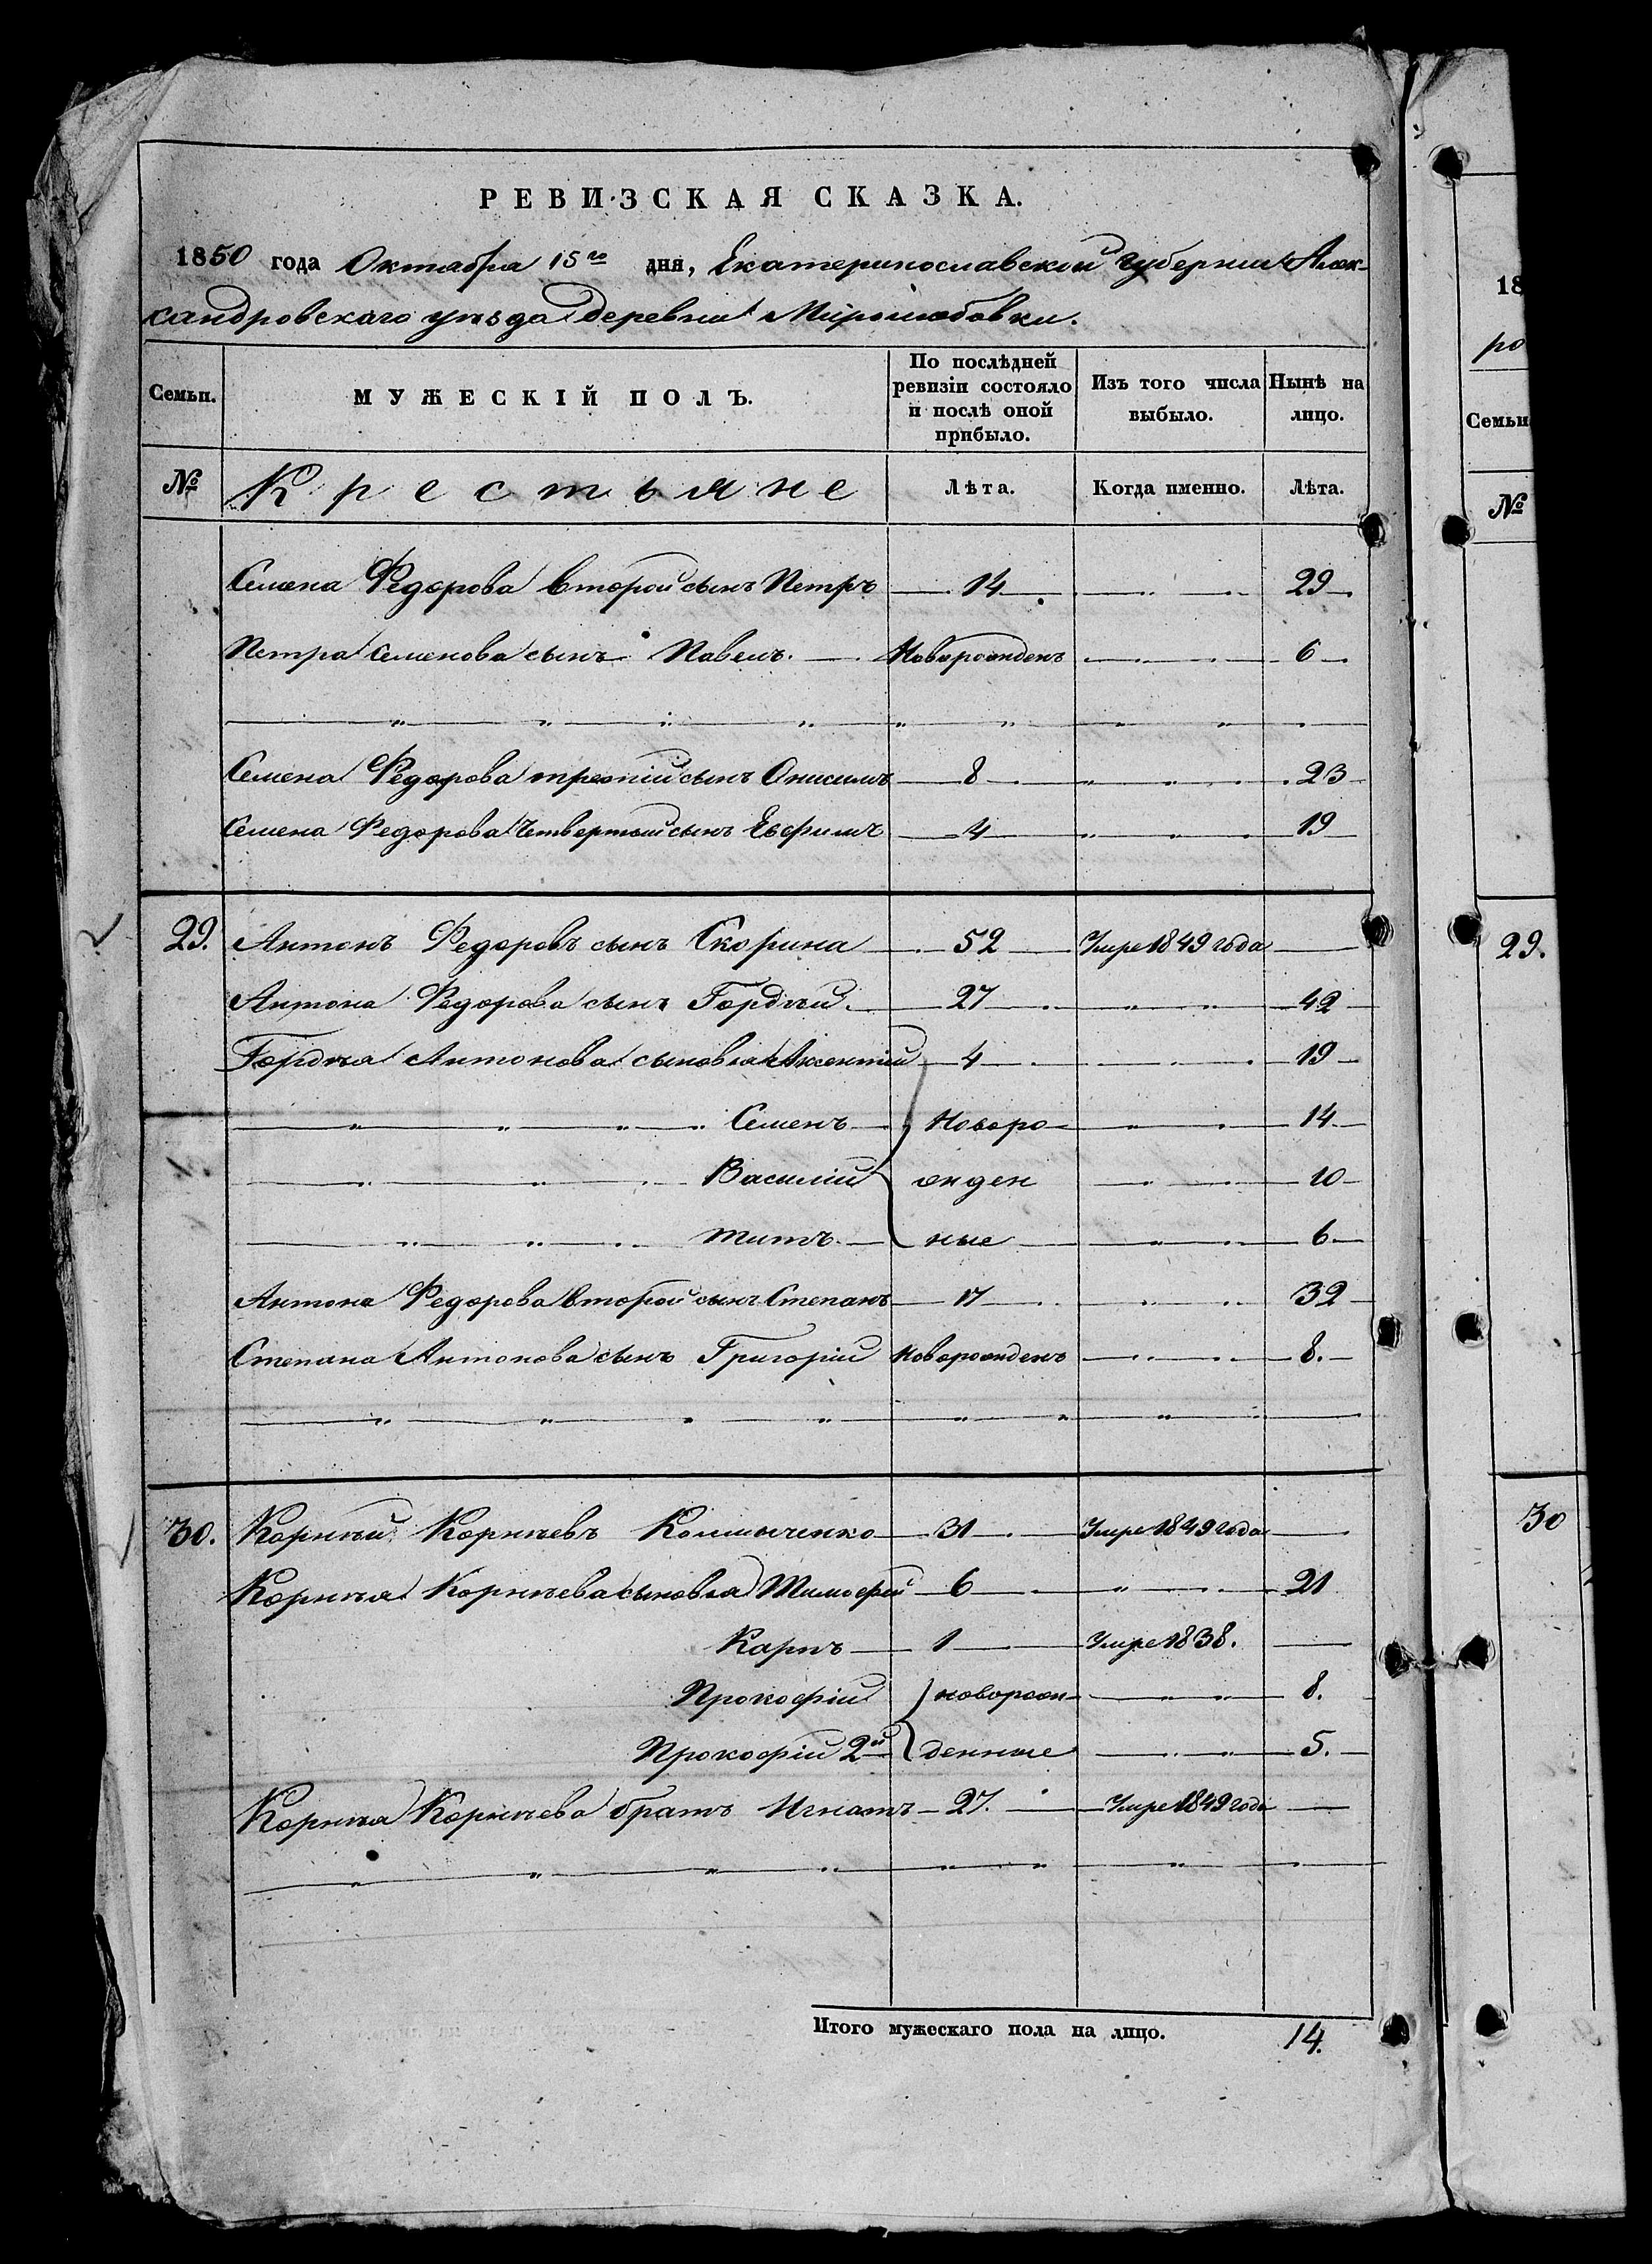 РЕВИЗСКАЯ СКАЗКА.
1850 года Октября 15го дня, Екатеринославской губернии Алек-
сандровскаго уѣзда деревни Миролюбовки.
Семьи. МУЖЕСКІЙ ПОЛЪ. По послѣдней ревизіи состояло и послѣ оной прибыло. Изъ того числа выбыло. Нынѣ на лицо.
№ Крестьяне Лѣта. Когда именно. Лѣта.
Семена Федорова второй сынъ Петръ 14 29
Петра Семенова сынъ Павелъ. Новорожденъ 6
Семена Федорова третій сынъ Онисимъ 8 23
Семена Федорова четвертый сынъ Евфимъ 4 19
29. Антонъ Федоровъ сынъ Скорина 52 Умре 1849 года
Антона Федорова сынъ Гордѣй 27 42
Гордѣя Антонова сыновья Аксентій 4 19
Семенъ Новоро 14
Василій жден 10
Титъ ные 6
Антона Федорова второй сынъ Степанъ 17 32
Степана Антонова сынъ Григорій Новорожденъ 8.
30. Корнѣй Корнѣевъ 31 Умре 1849 года
Корнѣя Корнѣева сыновья Тимофей 6 21
Карпъ 1 Умре 1838.
Прокофій новорож 8.
Прокофій 2й денные 5.
Корнѣя Корнѣева братъ Игнатъ 27. Умре 1849 года
Итого мужескаго пола на лицо. 14.
18
ро
Семьи
№
29.
30